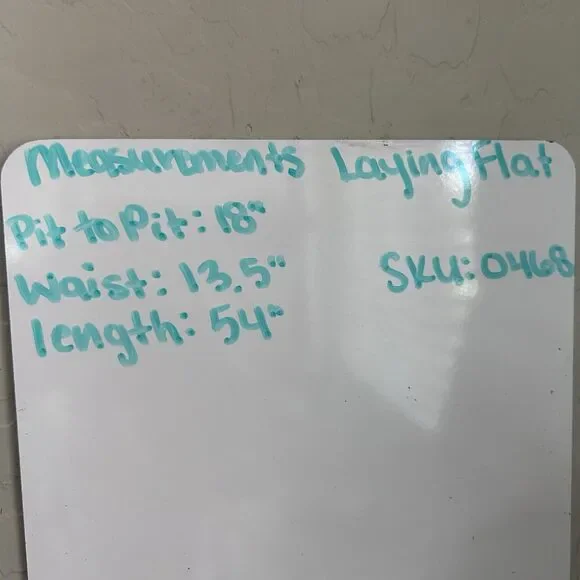 Measurements Laying Flat
Pit to Pit: 18"
Waist: 13.5"
SKU: 0468
length: 54"